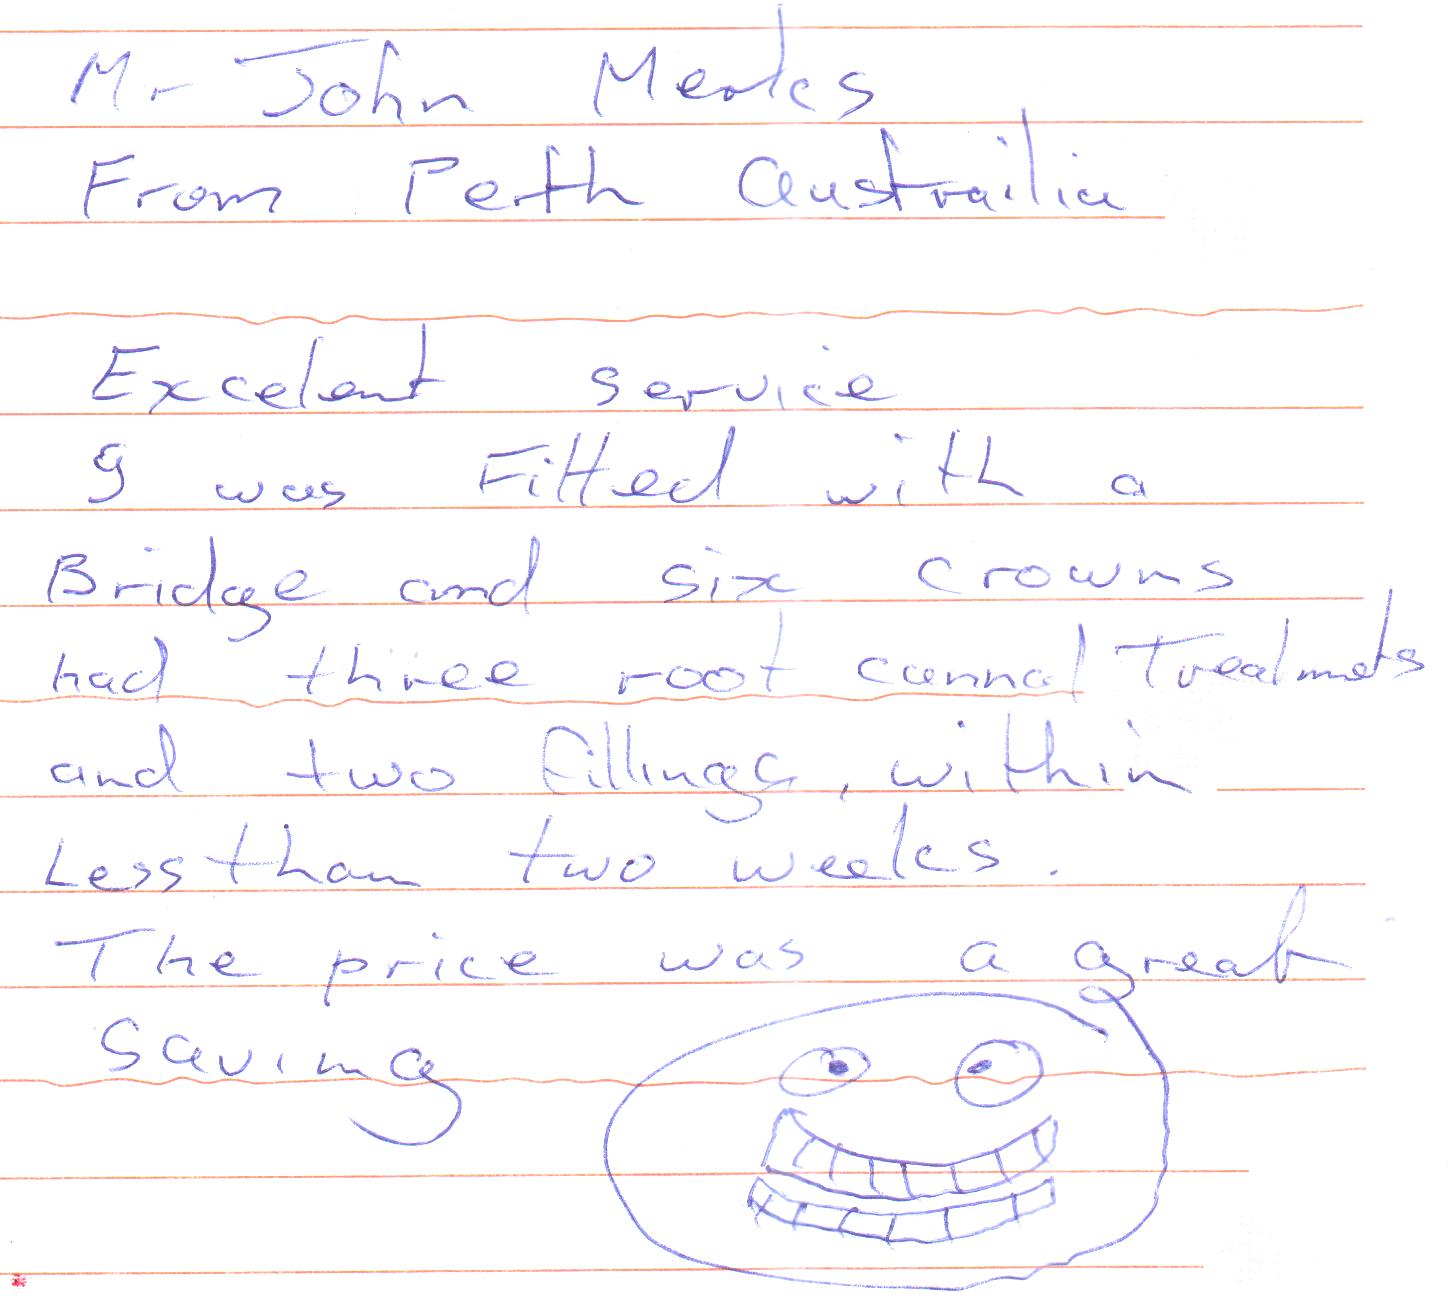 Mr John Meaks
From Perth Austrailia
Excelent service
I was Fitted with a
Bridge and six crowns
had three root cannal Treatmets
and two fillings, within
Less than two weeks.
The price was a great
Saving